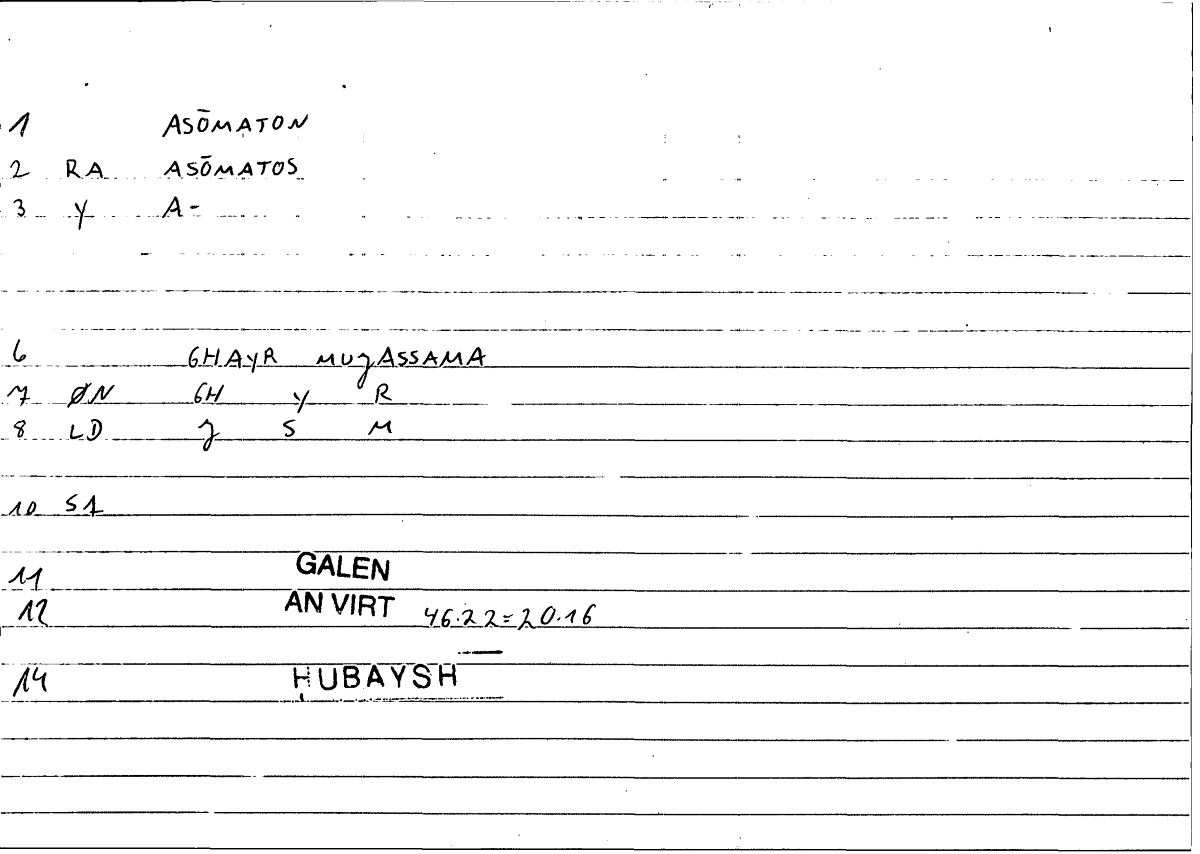 1 ASŌMATON
2 RA ASŌMATOS
3 Y A-
6 GHAYR MUJASSAMA
7 ØN GH Y R
8 LD J S M
10 S1
11 GALEN
12 AN VIRT 46.22=20.16
14 ḤUBAYSH